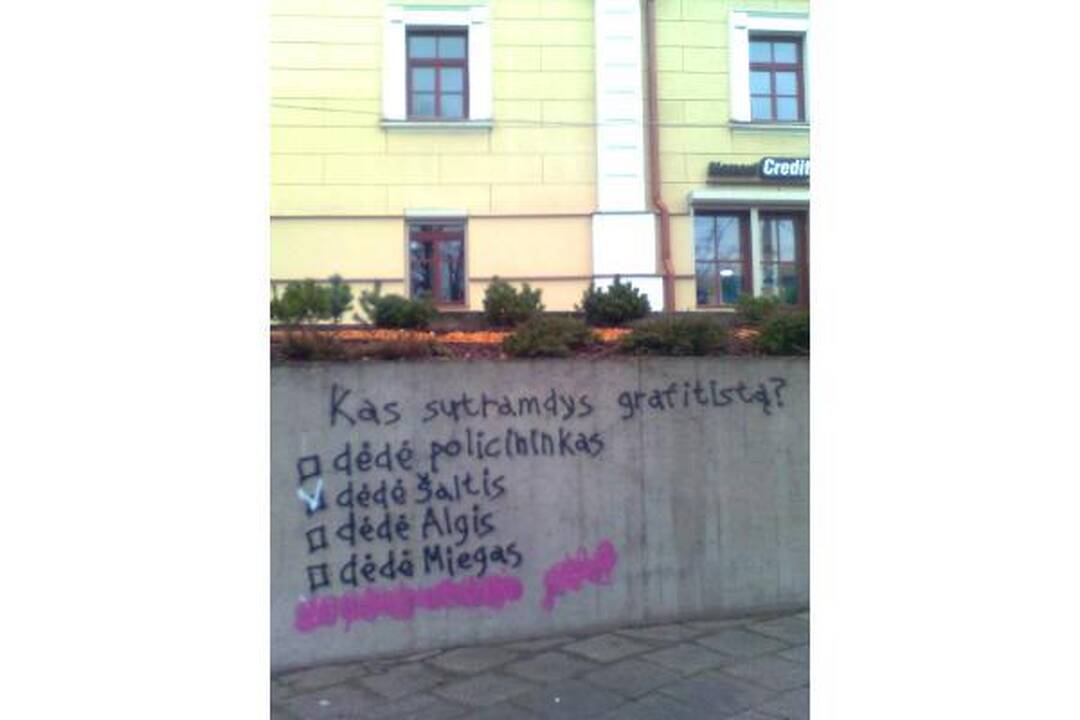 Credit
Kas sutramdys grafitistą?
dėdė policininkas
dėdė Šaltis
dėdė Algis
dėdė Miegas